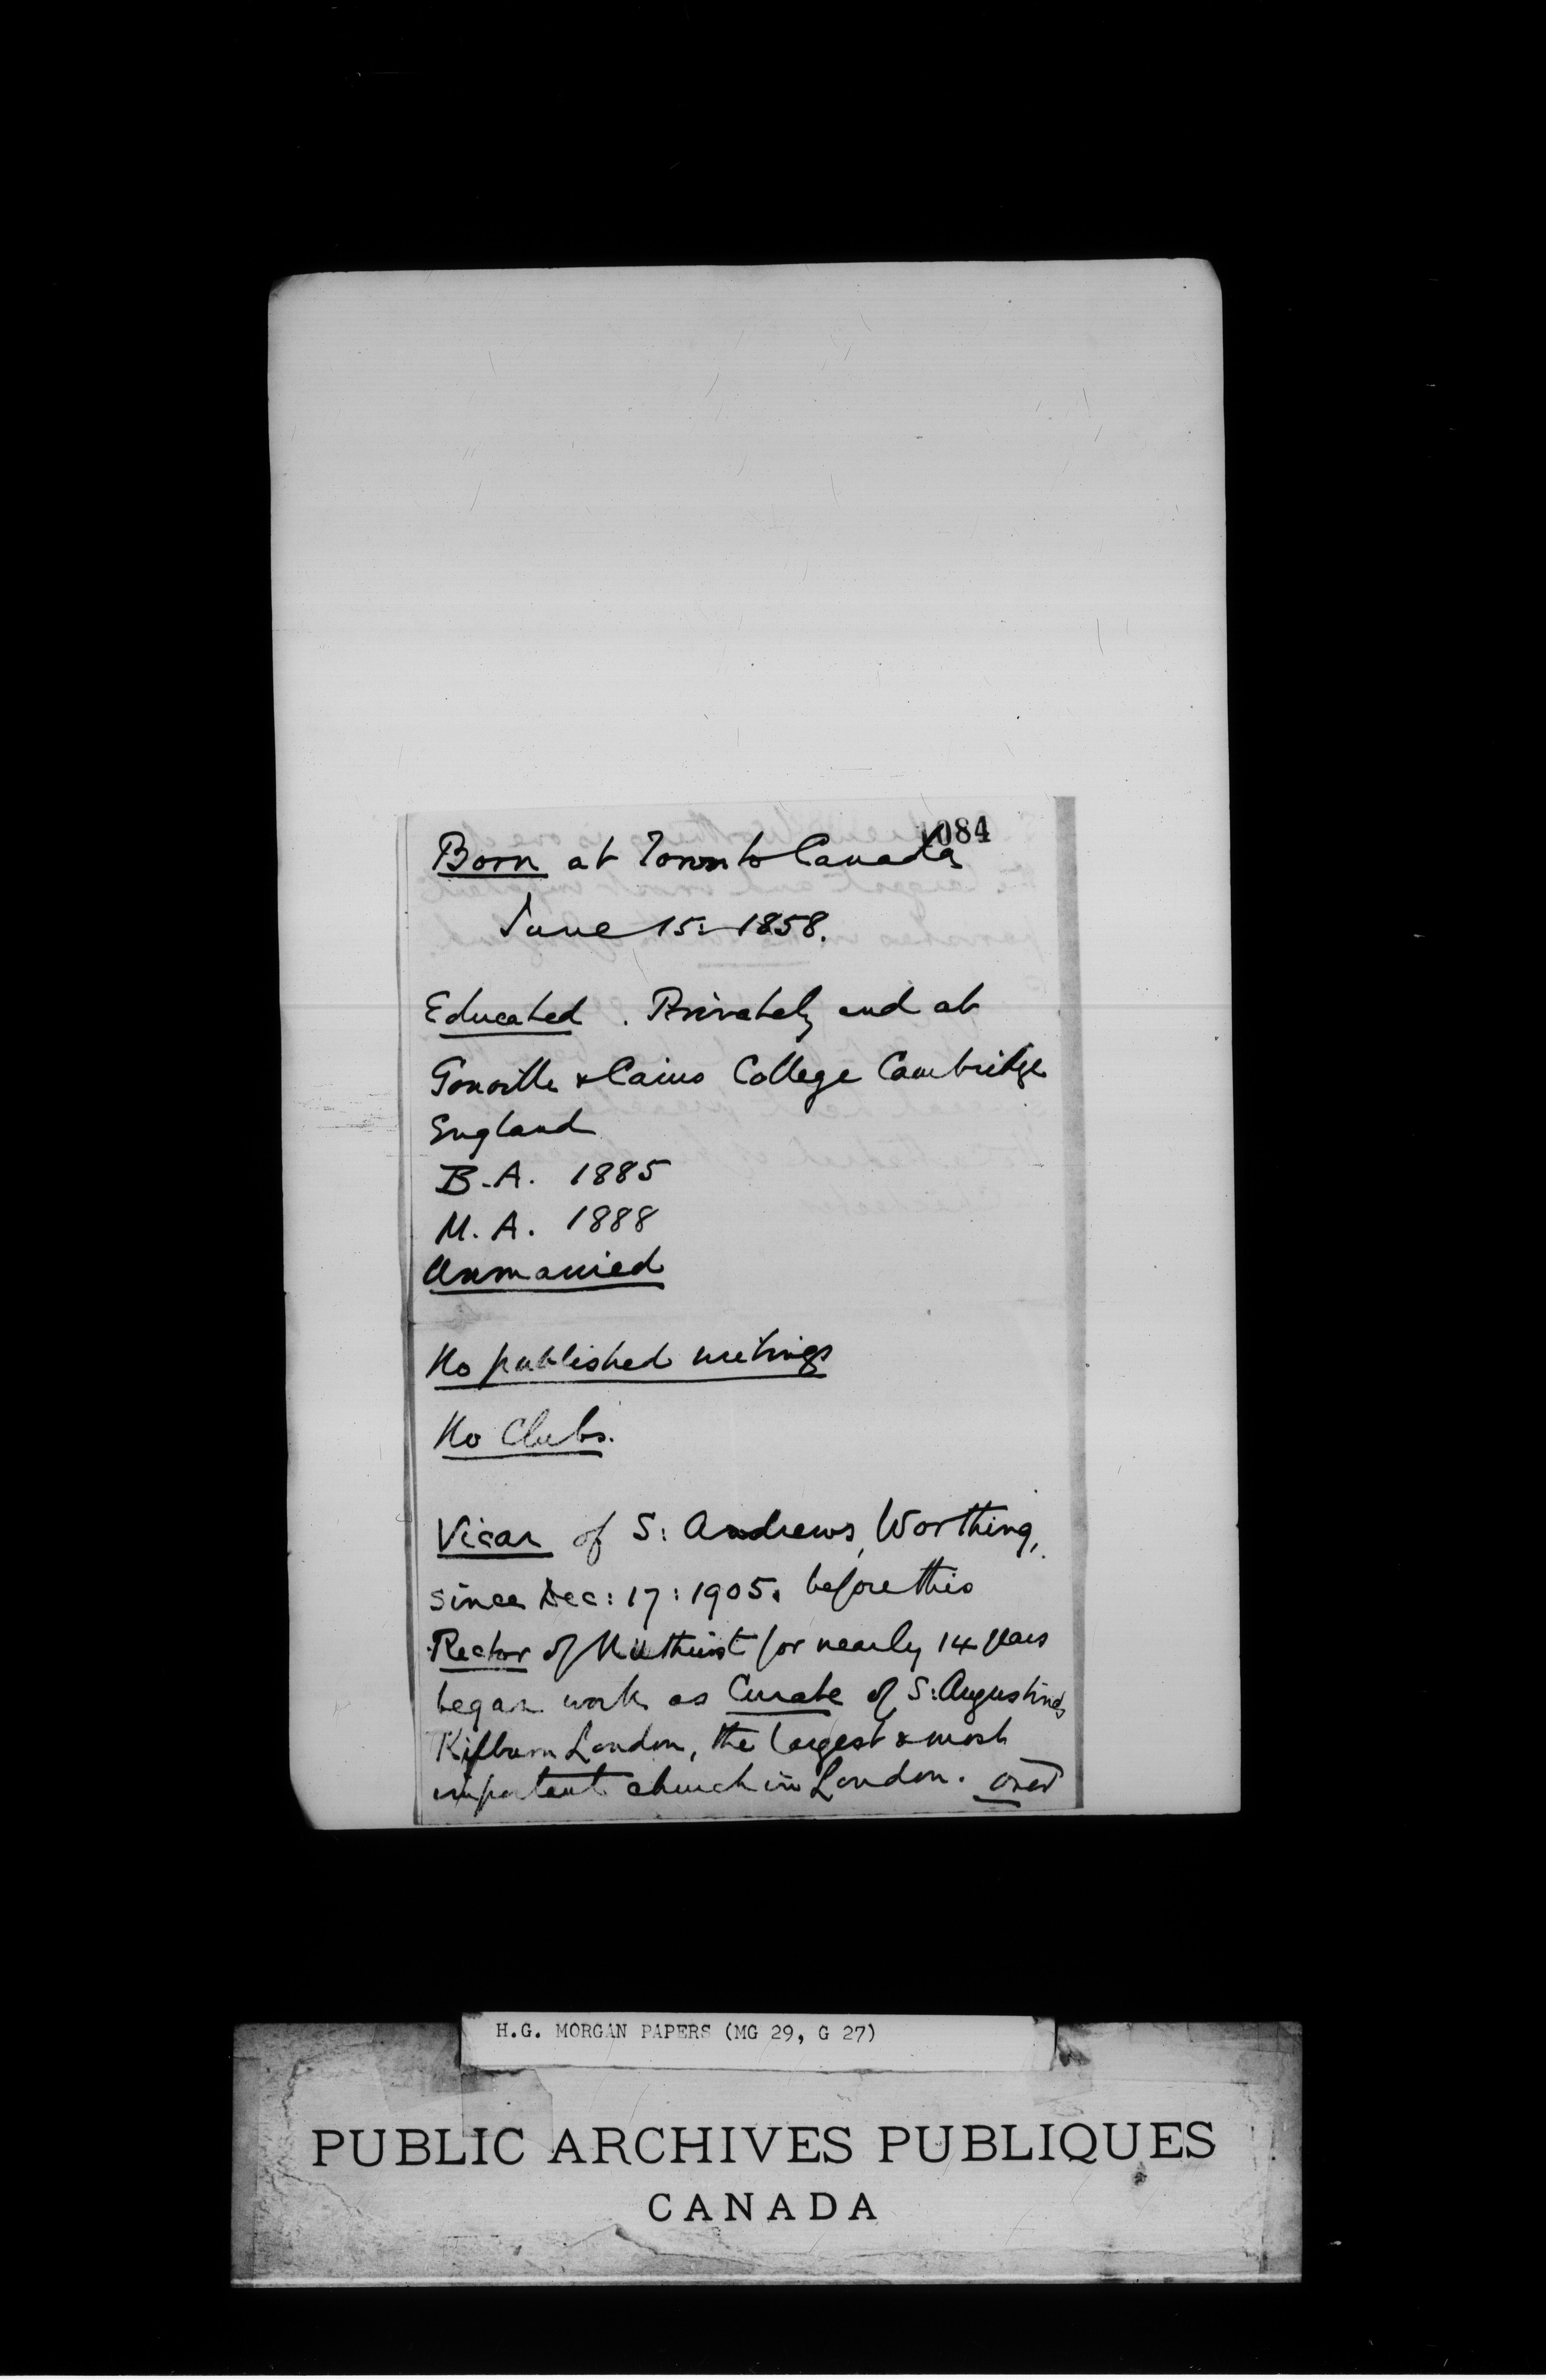 1084
Born at Toronto Canada
June 15: 1858.
Educated . Privately and at
Gonville & Caius College Cambridge
England
B.A. 1885
M.A. 1888
Unmarried
No published writings
No Clubs.
Vicar of S: Andrews, Worthing,
since Dec: 17: 1905. before this
Rector of Nuthurst for nearly 14 years
began work as Curate of S: Augustines
Kilburn London, the largest & most
important church in London. over
H.G. MORGAN PAPERS (MG 29, G 27)
PUBLIC ARCHIVES PUBLIQUES
CANADA